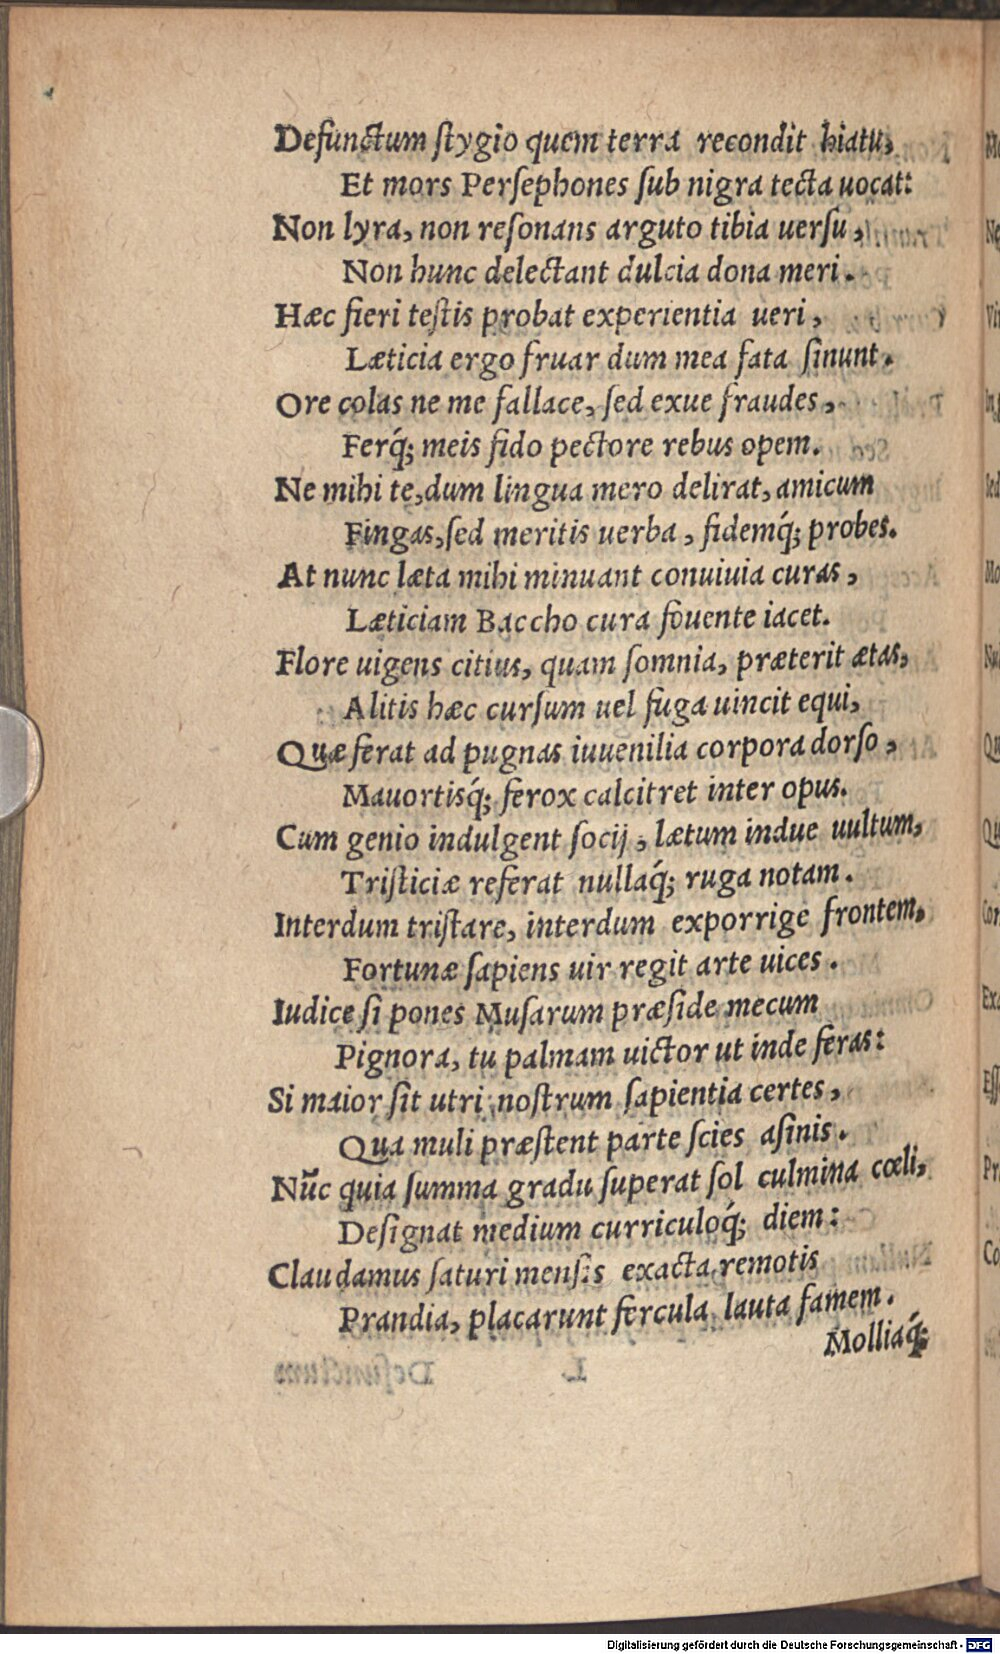 Defunctum ſtygio quem terra recondit hiatu,
Et mors Perſephones ſub nigra tecta uocat:
Non lyra, non reſonans arguto tibia uerſu,
Non hunc delectant dulcia dona meri.
Hæc fieri teſtis probat experientia ueri,
Læticia ergo fruar dum mea fata ſinunt.
Ore colas ne me fallace, ſed exue fraudes,
Ferq́; meis fido pectore rebus opem.
Ne mihi te, dum lingua mero delirat, amicum
Fingas, ſed meritis uerba, fidemq́; probes.
At nunc læta mihi minuant conuiuia curas,
Læticiam Baccho cura fouente iacet.
Flore uigens citius, quam ſomnia, præterit ætas,
Alitis hæc curſum uel fuga uincit equi,
Quæ ferat ad pugnas iuuenilia corpora dorſo,
Mauortisq́; ferox calcitret inter opus.
Cum genio indulgent ſocij, lætum indue uultum,
Triſticiæ referat nullaq́; ruga notam.
Interdum triſtare, interdum exporrige frontem,
Fortunæ ſapiens uir regit arte uices.
Iudice ſi pones Muſarum præſide mecum
Pignora, tu palmam uictor ut inde feras:
Si maior ſit utri noſtrum ſapientia certes,
Qua muli præſtent parte ſcies aſinis.
Nūc quia ſumma gradu ſuperat ſol culmina cœli,
Deſignat medium curriculoq́; diem:
Claudamus ſaturi menſis exacta remotis
Prandia, placarunt fercula lauta famem.
Molliaq́;
Digitalisierung gefördert durch die Deutsche Forschungsgemeinschaft - DFG